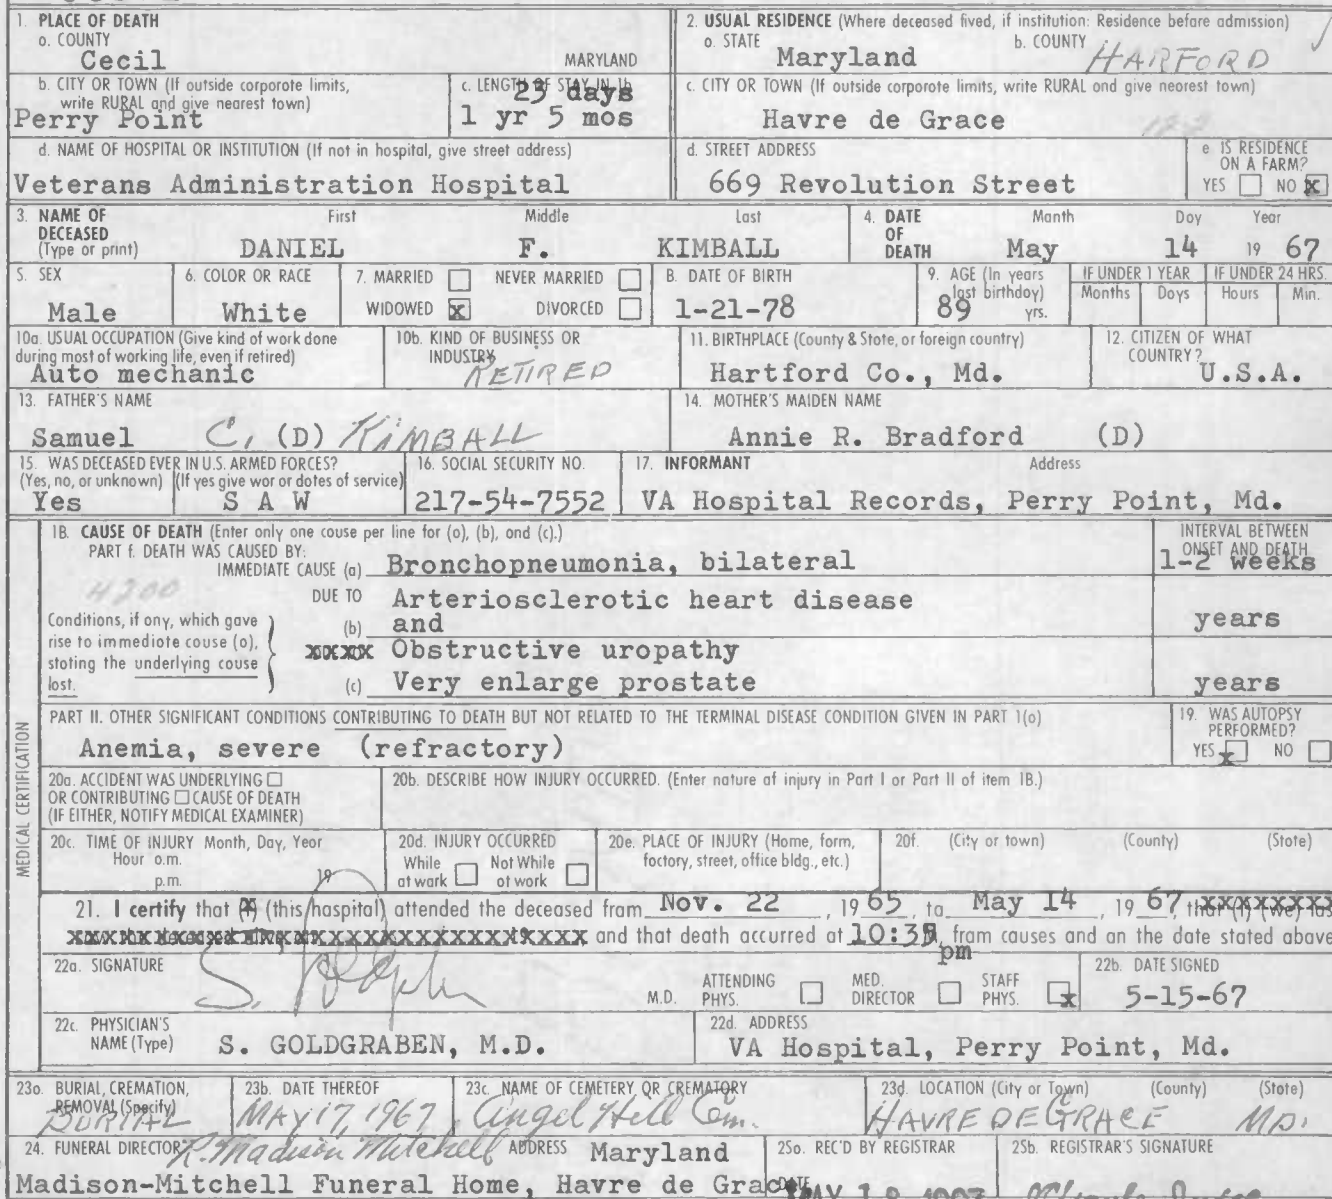 1. PLACE OF DEATH
a. COUNTY
Cecil MARYLAND
2. USUAL RESIDENCE (Where deceased lived, if institution: Residence before admission)
a. STATE b. COUNTY
Maryland HARFORD
b. CITY OR TOWN (If outside corporate limits, write RURAL and give nearest town)
Perry Point
c. LENGTH OF STAY IN 1b
23 days
1 yr 5 mos
c. CITY OR TOWN (If outside corporate limits, write RURAL and give nearest town)
Havre de Grace
d. NAME OF HOSPITAL OR INSTITUTION (If not in hospital, give street address)
Veterans Administration Hospital
d. STREET ADDRESS
669 Revolution Street
e IS RESIDENCE ON A FARM?
YES NO x
3. NAME OF DECEASED (Type or print)
First Middle Last
DANIEL F. KIMBALL
4. DATE OF DEATH
Month Day Year
May 14 19 67
5. SEX
Male
6. COLOR OR RACE
White
7. MARRIED NEVER MARRIED
WIDOWED x DIVORCED
8. DATE OF BIRTH
1-21-78
9. AGE (In years last birthday)
89 yrs.
IF UNDER 1 YEAR
Months Days
IF UNDER 24 HRS.
Hours Min.
10a. USUAL OCCUPATION (Give kind of work done during most of working life, even if retired)
Auto mechanic
10b. KIND OF BUSINESS OR INDUSTRY
RETIRED
11. BIRTHPLACE (County & State, or foreign country)
Hartford Co., Md.
12. CITIZEN OF WHAT COUNTRY?
U.S.A.
13. FATHER'S NAME
Samuel C. (D) KIMBALL
14. MOTHER'S MAIDEN NAME
Annie R. Bradford (D)
15. WAS DECEASED EVER IN U.S. ARMED FORCES?
(Yes, no, or unknown) (If yes give war or dates of service)
Yes S A W
16. SOCIAL SECURITY NO.
217-54-7552
17. INFORMANT Address
VA Hospital Records, Perry Point, Md.
MEDICAL CERTIFICATION
18. CAUSE OF DEATH (Enter only one cause per line for (a), (b), and (c).)
PART I. DEATH WAS CAUSED BY:
IMMEDIATE CAUSE (a) Bronchopneumonia, bilateral
INTERVAL BETWEEN ONSET AND DEATH
1-2 weeks
4200
Conditions, if any, which gave rise to immediate cause (a), stating the underlying cause last.
DUE TO Arteriosclerotic heart disease
(b) and years
xxxxx Obstructive uropathy
(c) Very enlarge prostate years
PART II. OTHER SIGNIFICANT CONDITIONS CONTRIBUTING TO DEATH BUT NOT RELATED TO THE TERMINAL DISEASE CONDITION GIVEN IN PART 1(a)
Anemia, severe (refractory)
19. WAS AUTOPSY PERFORMED?
YES x NO
20a. ACCIDENT WAS UNDERLYING
OR CONTRIBUTING CAUSE OF DEATH
(IF EITHER, NOTIFY MEDICAL EXAMINER)
20b. DESCRIBE HOW INJURY OCCURRED. (Enter nature of injury in Part I or Part II of item 18.)
20c. TIME OF INJURY Month, Day, Year
Hour a.m.
p.m. 19
20d. INJURY OCCURRED
While at work Not While at work
20e. PLACE OF INJURY (Home, farm, factory, street, office bldg., etc.)
20f. (City or town) (County) (State)
21. I certify that (this hospital) attended the deceased from Nov. 22, 1965, to May 14, 1967,
and that death occurred at 10:35 pm from causes and on the date stated above
22a. SIGNATURE
M.D. ATTENDING PHYS. MED. DIRECTOR STAFF PHYS. x
22b. DATE SIGNED
5-15-67
22c. PHYSICIAN'S NAME (Type)
S. GOLDGRABEN, M.D.
22d. ADDRESS
VA Hospital, Perry Point, Md.
23a. BURIAL, CREMATION, REMOVAL (Specify)
BURIAL
23b. DATE THEREOF
MAY 17, 1967
23c. NAME OF CEMETERY OR CREMATORY
Angel Hill Cem.
23d. LOCATION (City or Town) (County) (State)
HAVRE DE GRACE MD.
24. FUNERAL DIRECTOR R. Madison Mitchell ADDRESS Maryland
Madison-Mitchell Funeral Home, Havre de Grace
25a. REC'D BY REGISTRAR
DATE MAY 18
25b. REGISTRAR'S SIGNATURE